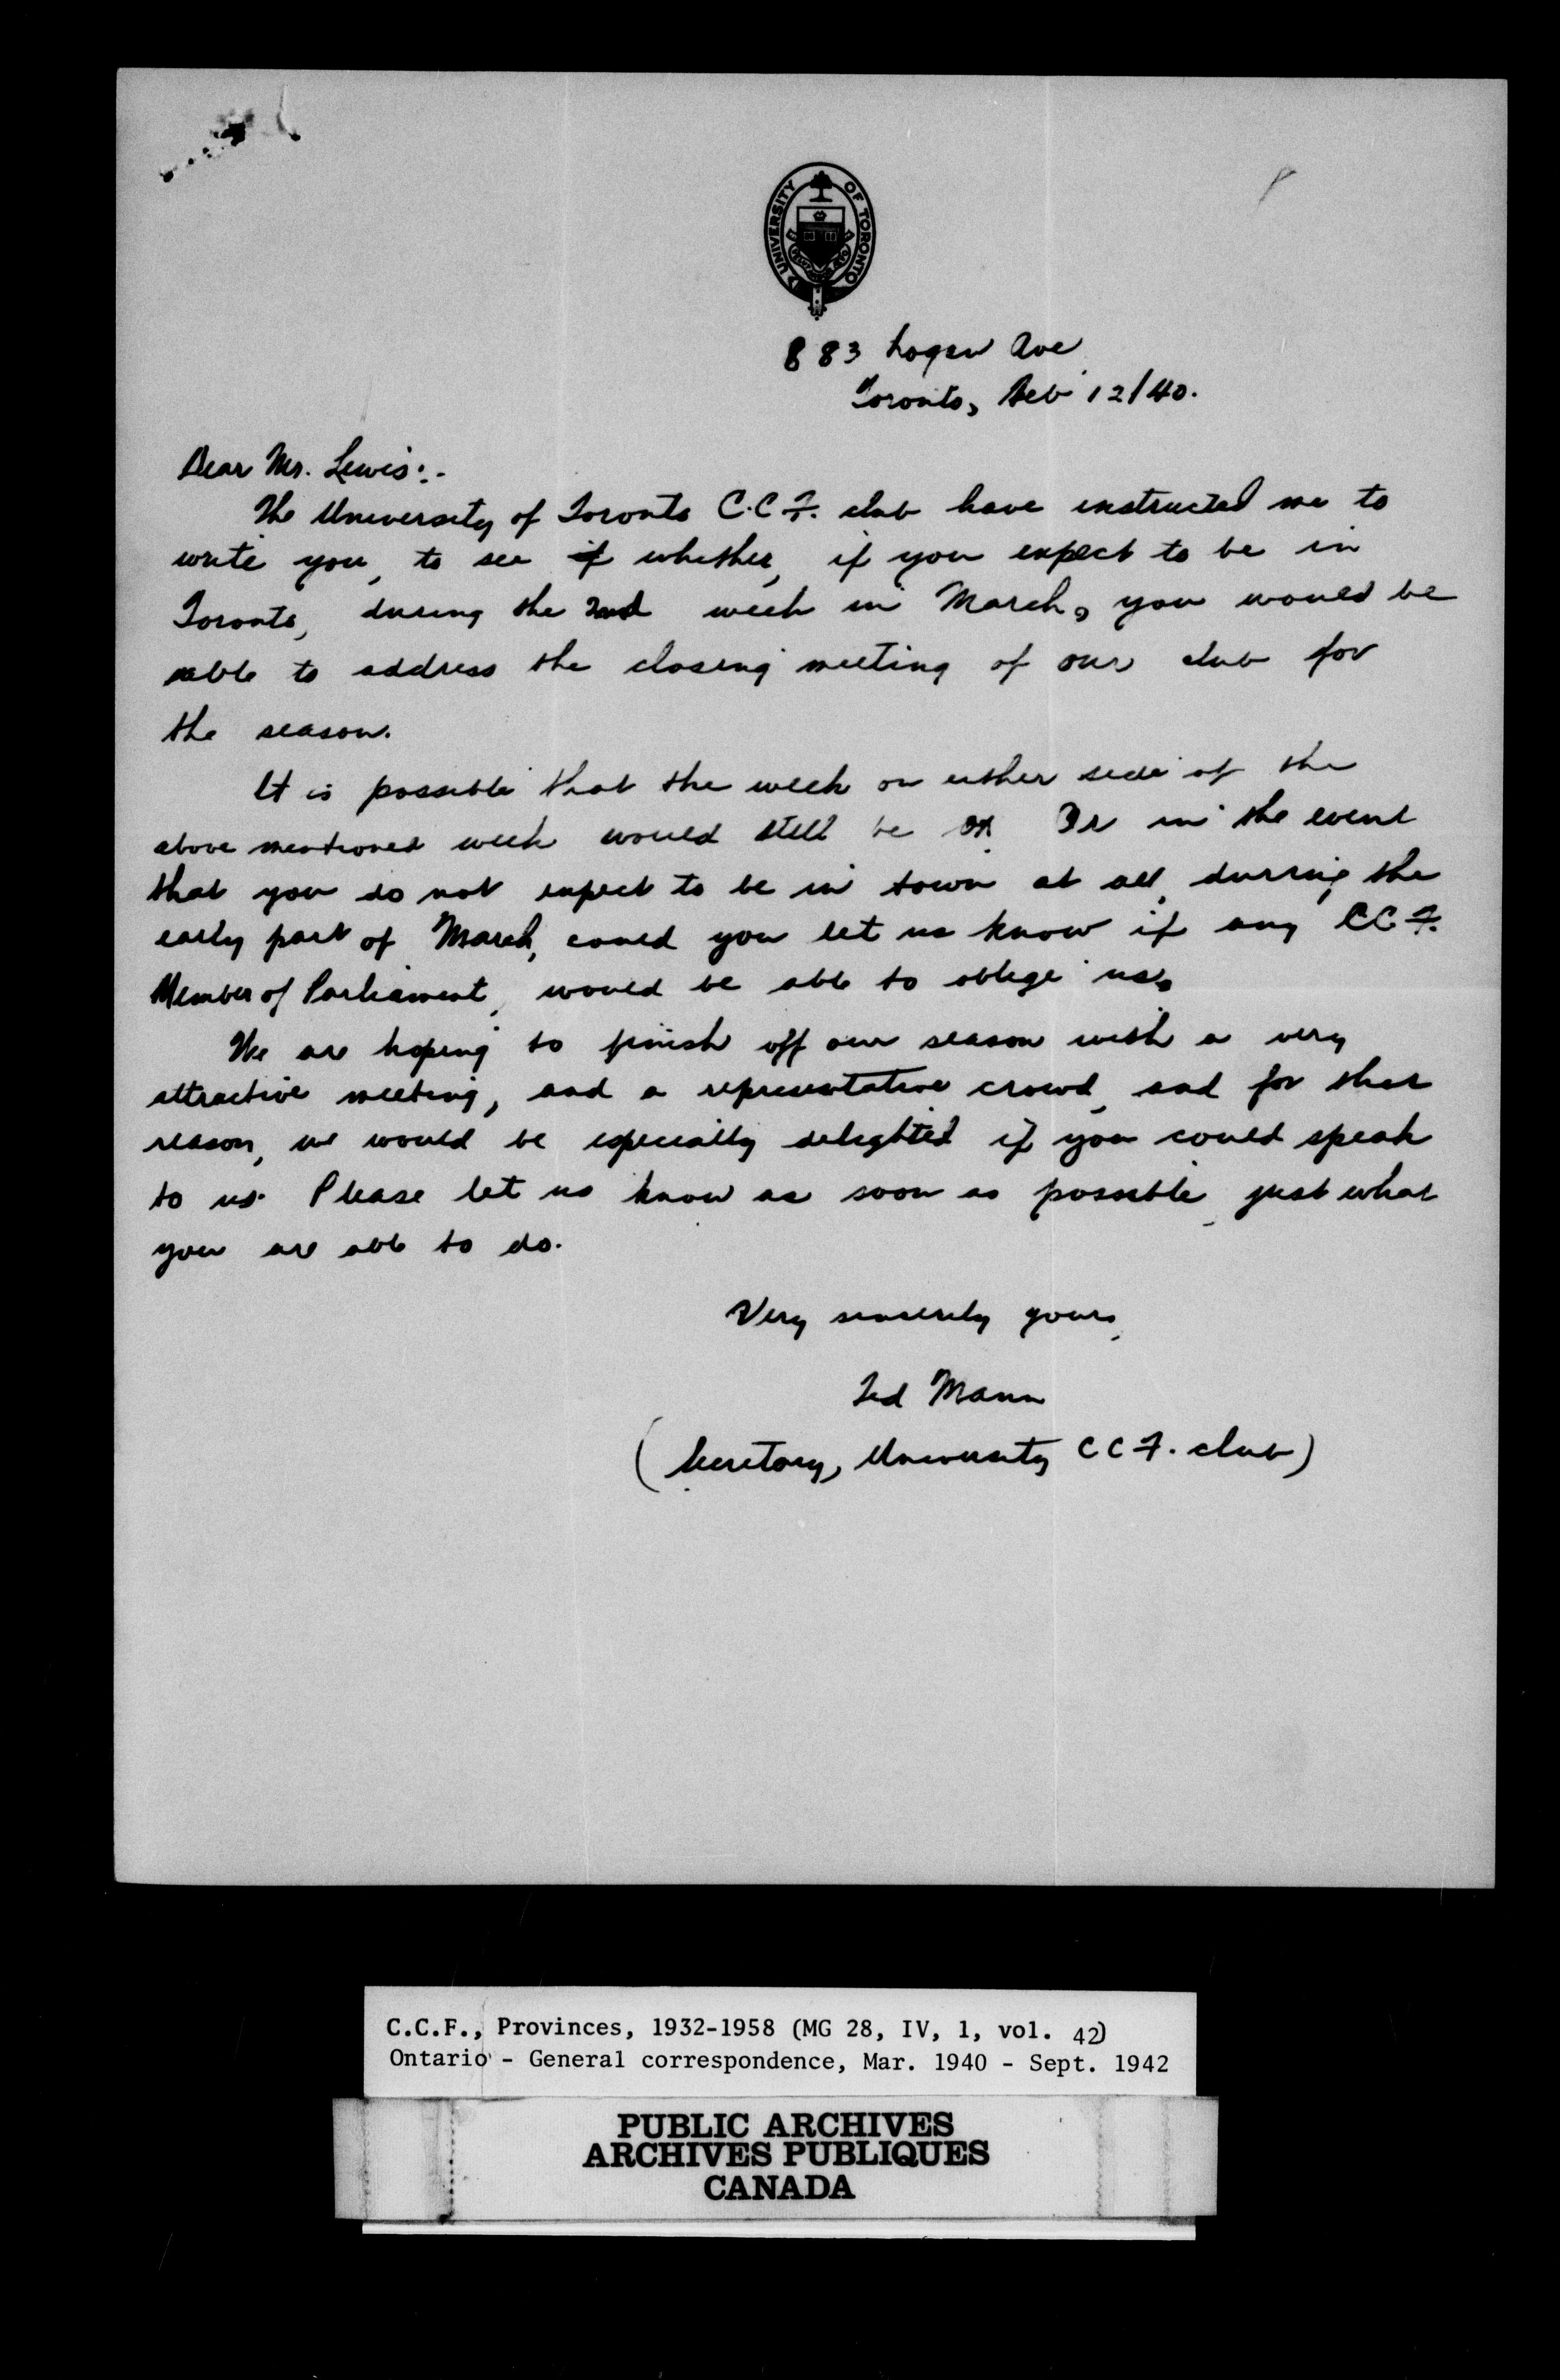 UNIVERSITY OF TORONTO
883 Logan Ave
Toronto, Feb 12/40.
Dear Mr. Lewis:-
The University of Toronto C.C.F. club have instructed me to
write you, to see if whether, if you expect to be in
Toronto, during the 2nd week in March, you would be
able to address the closing meeting of our club for
the season.
It is possible that the week on either side of the
above mentioned week would still be OK. Or in the event
that you do not expect to be in town at all, during the
early part of March, could you let us know if any C.C.F.
Member of Parliament, would be able to oblige us.
We are hoping to finish off our season with a very
attractive meeting, and a representative crowd, and for that
reason, we would be especially delighted if you could speak
to us. Please let us know as soon as possible, just what
you are able to do.
Very sincerely yours,
Ted Mann
(Secretary, University C C F. club)
C.C.F., Provinces, 1932-1958 (MG 28, IV, 1, vol. 42)
Ontario - General correspondence, Mar. 1940 - Sept. 1942
PUBLIC ARCHIVES
ARCHIVES PUBLIQUES
CANADA